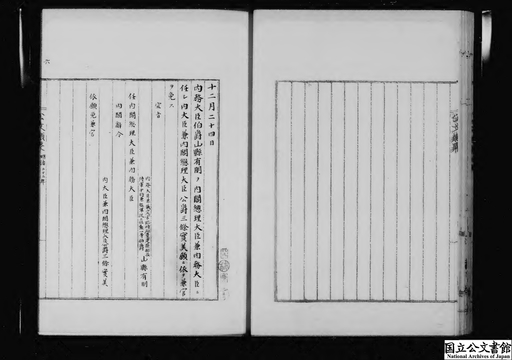 十二月二十四日
内務大臣伯爵山縣有朋ヲ内閣總理大臣兼内務大臣ニ
任シ内大臣兼内閣總理大臣公爵三條實美願ニ依リ兼官
ヲ免ス
宣旨
任内閣總理大臣兼内務大臣
山縣有朋
内閣辞令
依願免兼官
内大臣兼内閣總理大臣公爵三條實美
国立公文書館
National Archives of Japan